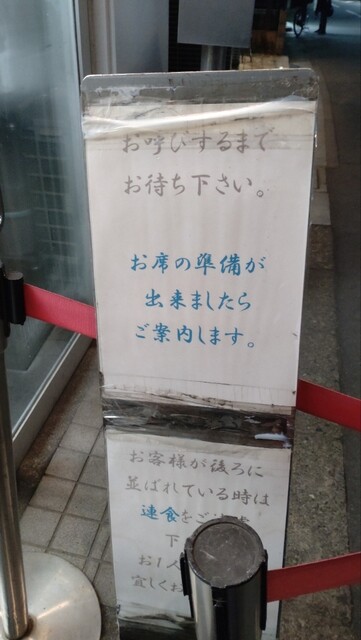 お呼びするまで
お待ち下さい。
お席の準備が
出来ましたら
ご案内します。
お客様が後ろに
並ばれている時は
速食をご
下
お1人
宜しくお